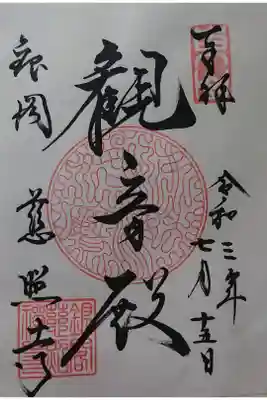 奉拝
令和三年
七月十五日
觀音殿
銀閣
慈照寺